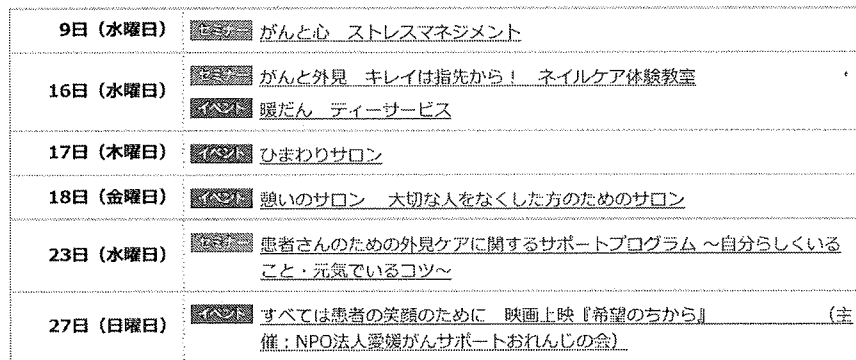 9日（水曜日） セミナー がんと心　ストレスマネジメント
16日（水曜日） セミナー がんと外見　キレイは指先から！　ネイルケア体験教室
イベント 暖だん　ティーサービス
17日（木曜日） イベント ひまわりサロン
18日（金曜日） イベント 憩いのサロン　大切な人をなくした方のためのサロン
23日（水曜日） セミナー 患者さんのための外見ケアに関するサポートプログラム ～自分らしくいる
こと・元気でいるコツ～
27日（日曜日） イベント すべては患者の笑顔のために　映画上映『希望のちから』　（主
催：NPO法人愛媛がんサポートおれんじの会）